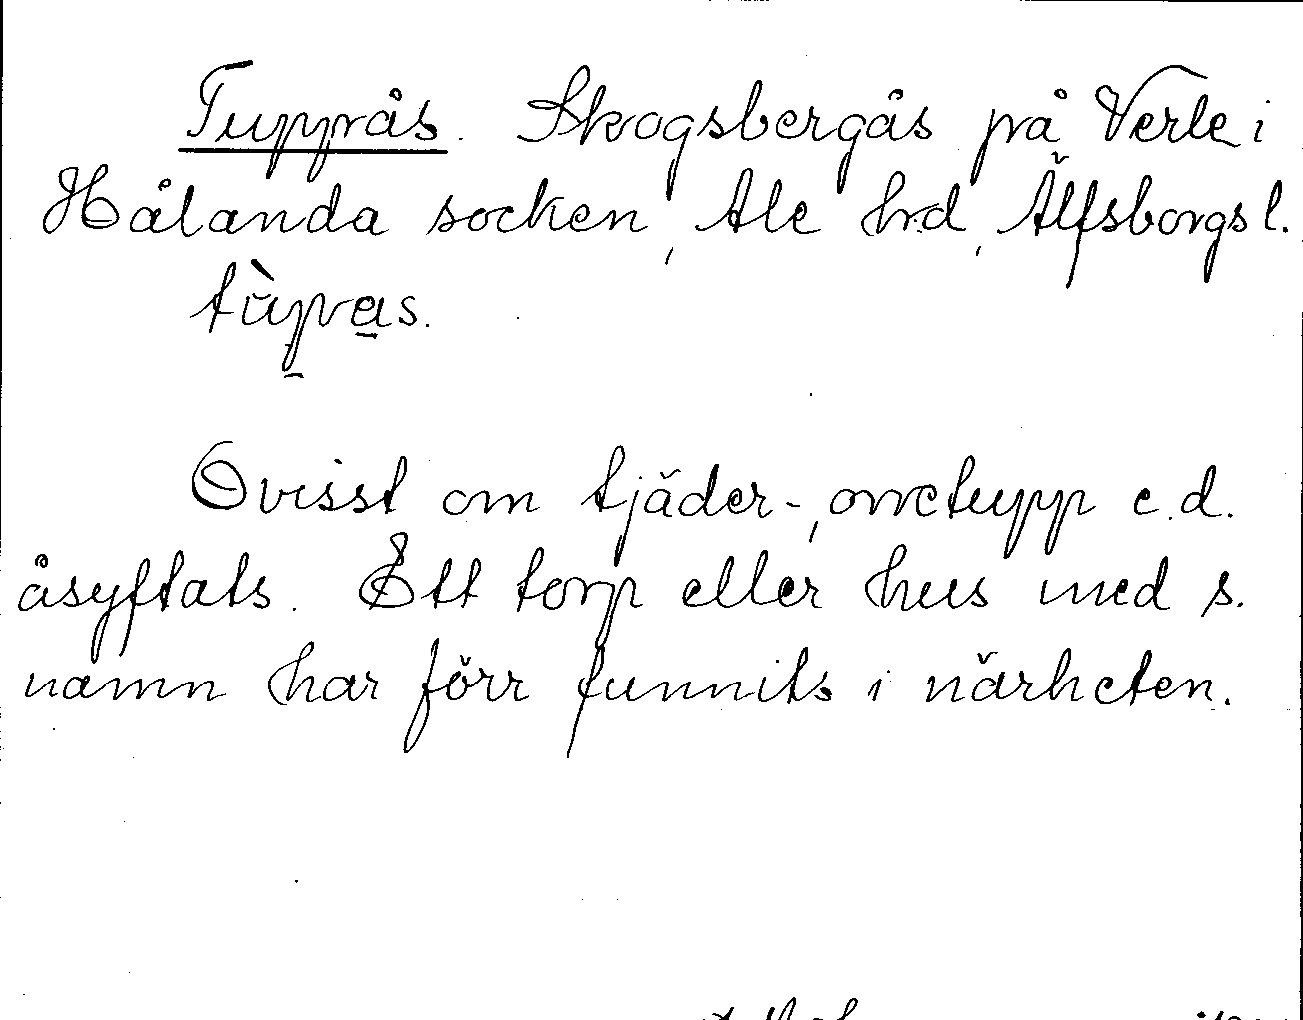 Tuppås. Skogsbergås på Verle i
Hålanda socken, Ale hrd, Älfsborgs l.
tùpas.
Ovisst om tjäder-, orretupp e.d.
åsyftats. Ett torp eller hus med s.
namn har förr funnits i närheten.